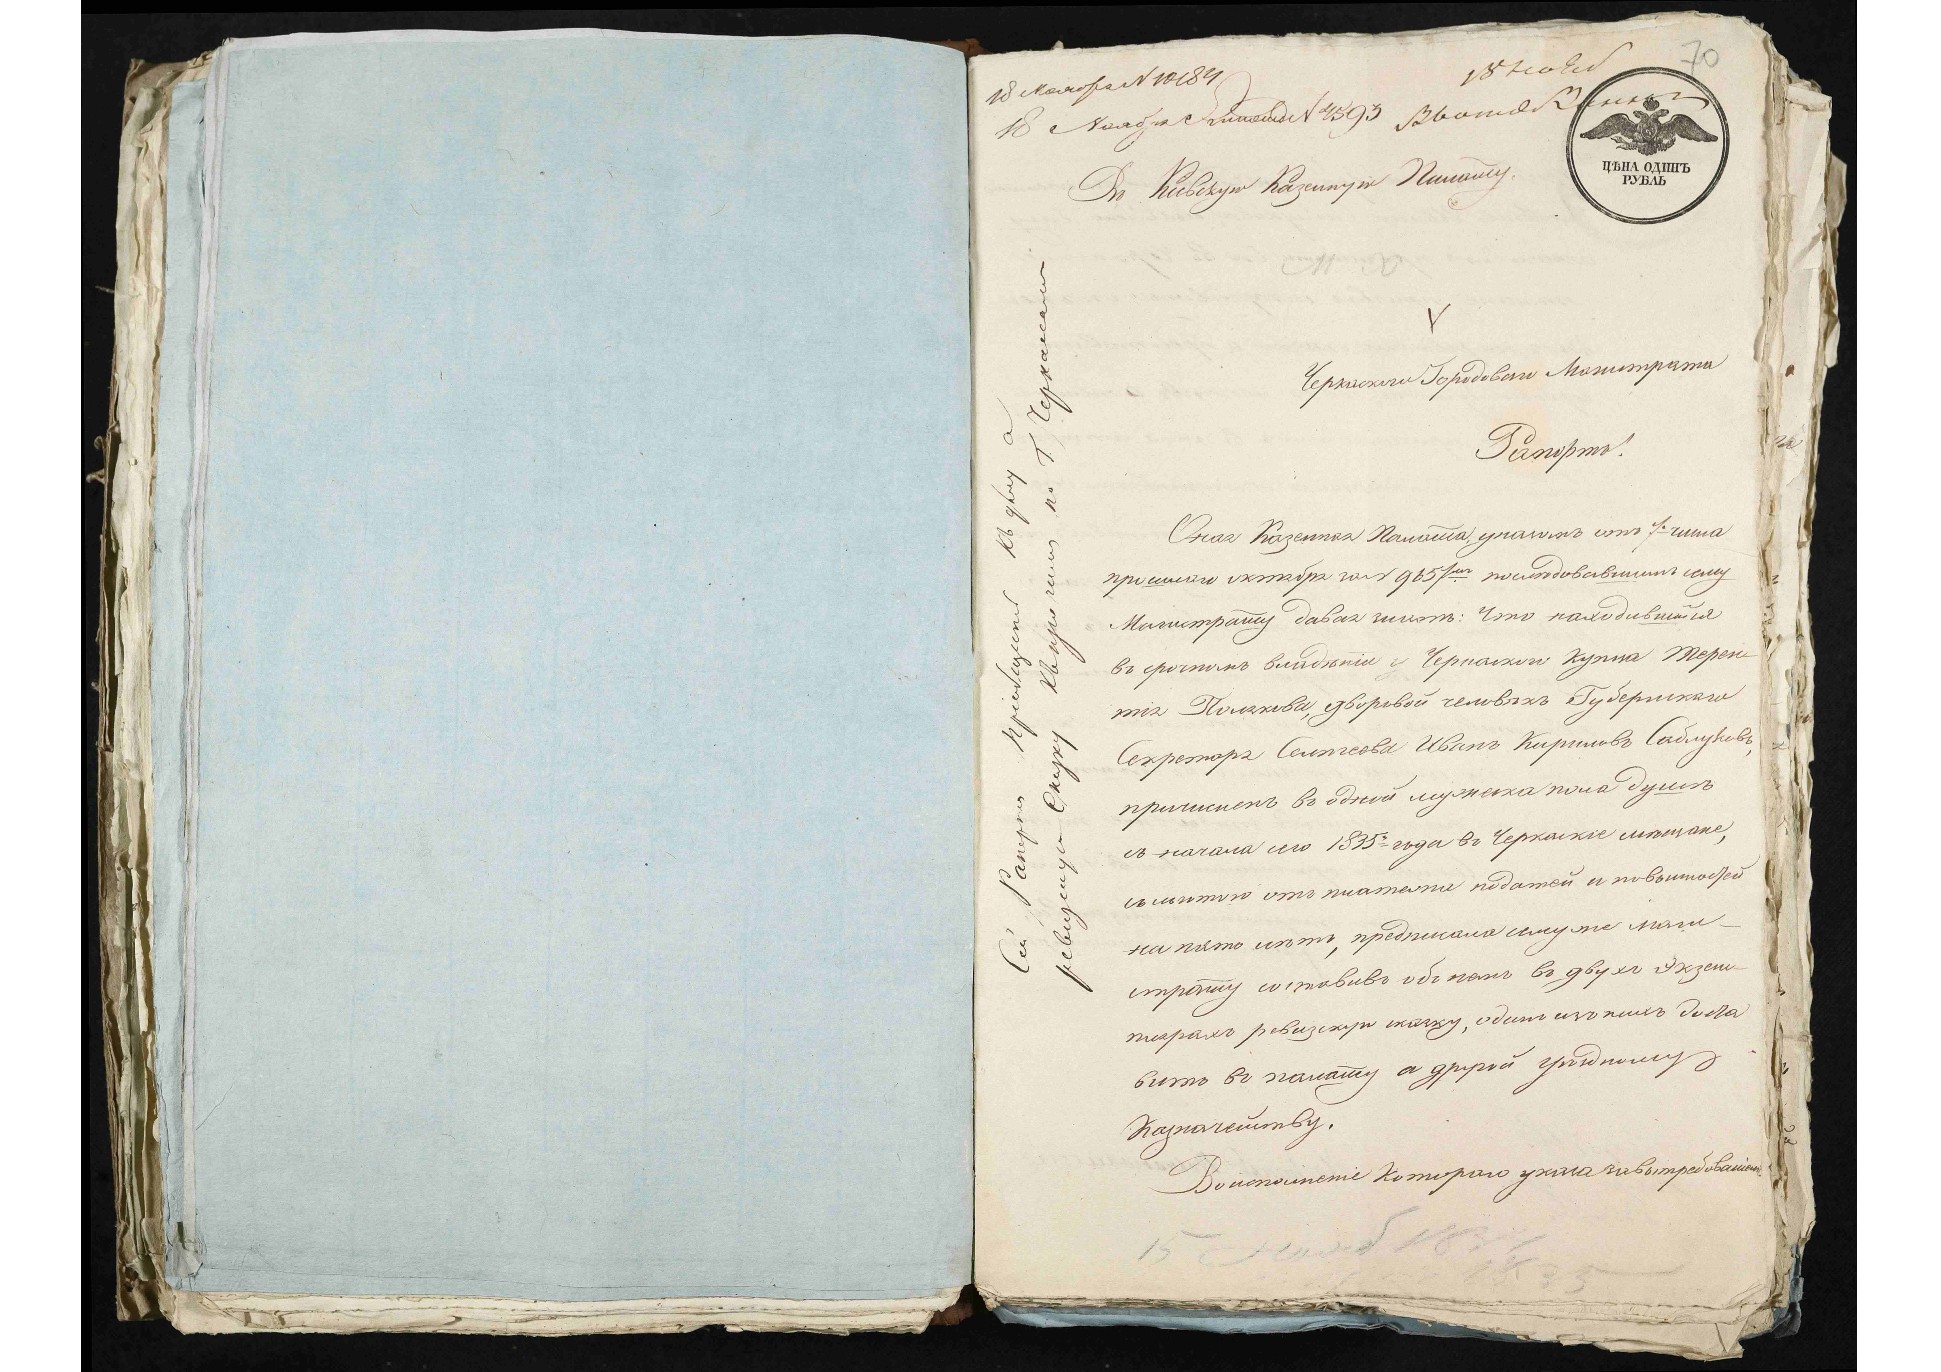 70
18 Ноября N 10184
18 нояб
18 Ноября N 4593
ЦѢНА ОДИНЪ
РУБЛЬ
Въ Кіевскую Казенную Палату.
Черкаского Городоваго Магистрата
Рапортъ.
Оная Казенная Палата, указомъ отъ 1 числа
прошлаго октября за N 965 послѣдовавшимъ сему
Магистрату давая знать: Что находившійся
въ срочномъ владѣніи у Черкаского купца Терен-
тія Полякова, дворовой человѣкъ Губернскаго
Секретаря Селичеова Иванъ Кириловъ Саблуковъ,
причисленъ въ одной мужеска пола душѣ
съ начала сего 1835 года въ Черкаскіе мѣщане,
съ льготою отъ платежа податей и повинностей
на пять лѣтъ, предписала сему же Маги-
страту составивъ объ немъ въ двухъ Экзем-
плярахъ ревизскую сказку, одинъ изъ нихъ доста
вить въ палату а другой уѣздному
Казначейству.
Во исполненіе Котораго указа за вытребованіемъ
Сей Рапортъ пріобщенъ къ дѣлу а
ревизскую Сказку къ прочимъ по Г. Черкасамъ
15 нояб 183
1835